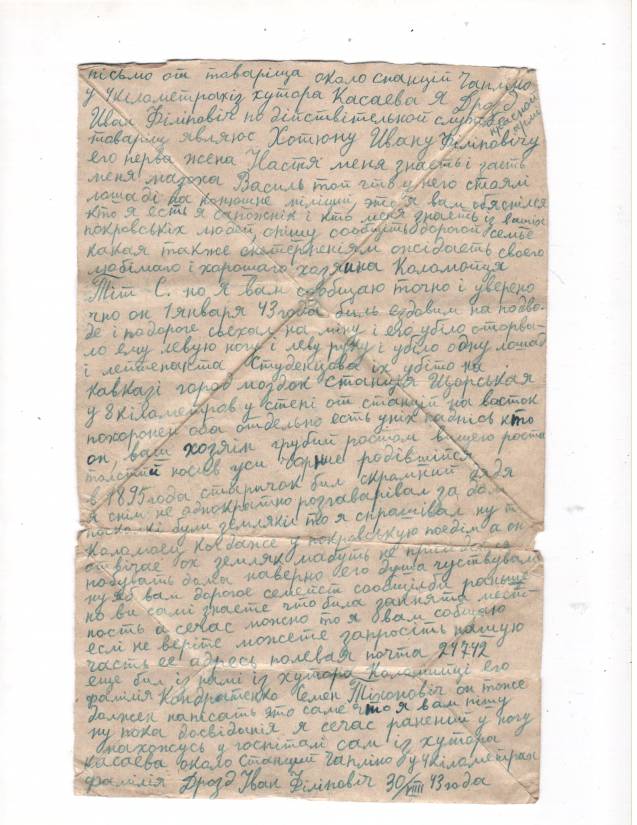 пісьмо от товаріща около станций Чапліно
у 4кілометрахіз хутора Касаева Я Дрозд
Иван Філіповіч по дійствітельной службе
красной армі
товаріщ являюс Хотюну Ивану Філіповічу
его перва жена Настя меня знаєть і зять
меня Василь тот что у него стоялі
лошаді на конюшне міліциі, это я вам обяснілся
кто я есть я сапожнік і кто меня знаєть із ваших
покровськіх людей, спішу сообщіть дорогой семье
какая также снетерпенієм ожідаєть своего
любімаго і хорошаго хозяина Коломойця
Тіт С. но я вам сообщаю точно і уверено
что он 1 января 43 года биль ездовим на подво-
де і подороге сьехал на міну і его убіло оторва-
ло ему левую ногу і леву руку і убіло одну лошадь
і лейтенанта Студенцова їх убіто на
Кавказі город моздок станция Ищорськая
у 8 кілометров у степі от станций на восток
похоронен оба отдельно есть уніх надпісь кто
он, ваш хозяін грубий ростом вищего роста
толстий носів уси чорние родівшійся
в 1895 года старичок бил скрамний дядя
я сним не аднократно розгаварівал за дом
посколкі були земляки то я спрашівал ну т.
Коломоец когдаже у покровськую поедім а он
отвічае ох земляк мабуть не прийдеця
побувать дома наверно его душа чуствувала
ну яб вам дорогое семейст сообщілби раньше
но ви самі знаете что била занята мест-
ность а сечас можно то я вам собщаю
еслі не веріте можете запросіть нашую
часть ее адресь полевая почта 24742
еще бил із намі із хутора Коломийці его
фамілія Кондратенко Семен Тіхоновіч он тоже
должен напісать это саме что я вам пішу
ну пока досвіданія я сечас раненій у ногу
нахожусь у госпіталі сам із хутора
Касаева около станций Чапліно у 4кілометрах
фамілія Дрозд Іван Філіповіч 30/VIII 43 года